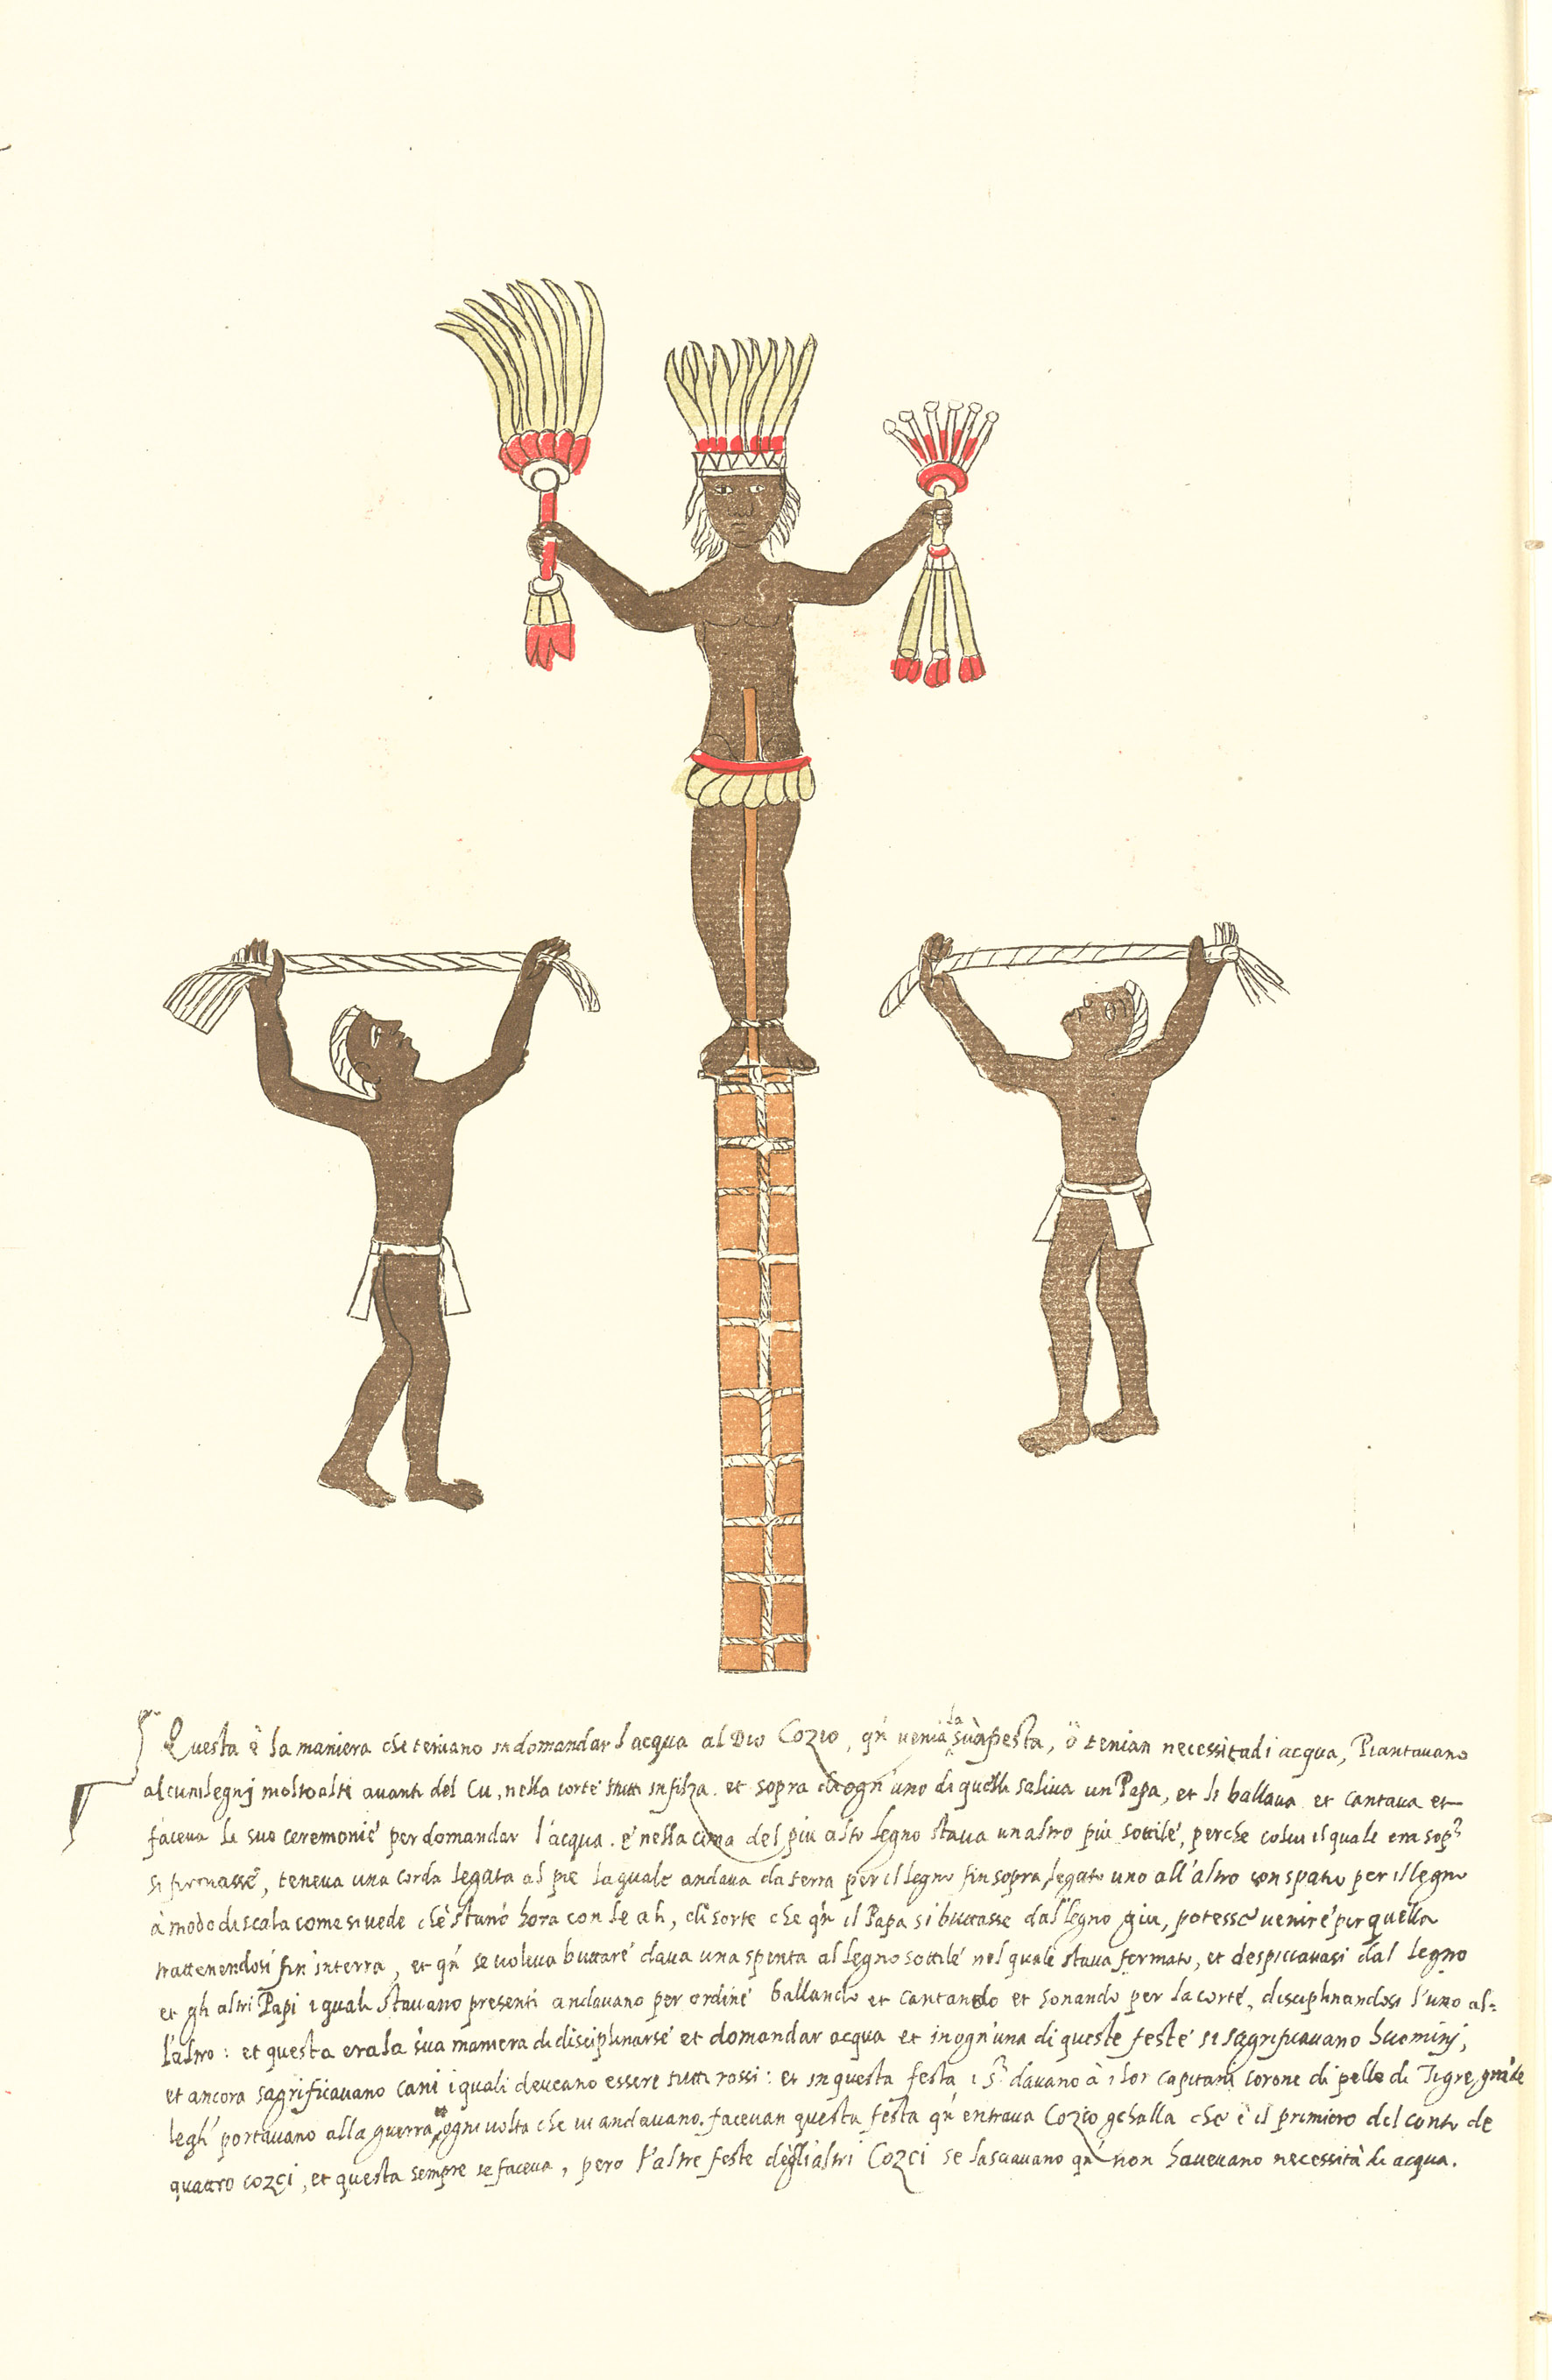 Questa è la maniera che tenivano in domandar l'acqua al Dio Cozio, qñ venia la sua festa, ò tenian necessità di acqua, Piantavano
alcuni legnj molto alti avanti del Cu, nella corte tutti in filza. et sopra di ogn'uno di quelli saliva un Papa, et li ballava et cantava et
faceva le sue ceremonie per domandar l'acqua. e nella cima del piu alto legno stava un altro più sottile, perche colui il quale era sopª
si firmasse, teneva una corda legata al pie la quale andava da terra per il legno fin sopra, legato uno all'altro con spatio per il legno
à modo di scala come si vede che stanò hora con le ali, di sorte che qñ il Papa si buttasse dal legno giu, potesse venire per quella
trattenendosi fin in terra, et qñ se voleva buttare dava una spenta al legno sottile nel quale stava fermato, et despiccavasi dal legno
et gli altri Papi i quali stavano presenti andavano per ordine ballando et cantando et sonando per la corte, disciplinandosi l'uno al=
l'altro: et questa era la sua maniera di disciplinarse et domandar acqua et in ogn'una di queste feste si sagrificavano huominj,
et ancora sagrificavano cani i quali deveano essere tutti rossi: et in questa festa i Sri davano à i lor capitani corone di pelle di Tigre,
le gli portavano alla guerra ogni volta che vi andavano. facevan questa festa qñ entrava Cozio gehalla che è il primiero del conto de
quatro cozci, et questa sempre se faceva, pero l'altre feste degli altri Cozci se lasciavano qñ non havevano necessità di acqua.